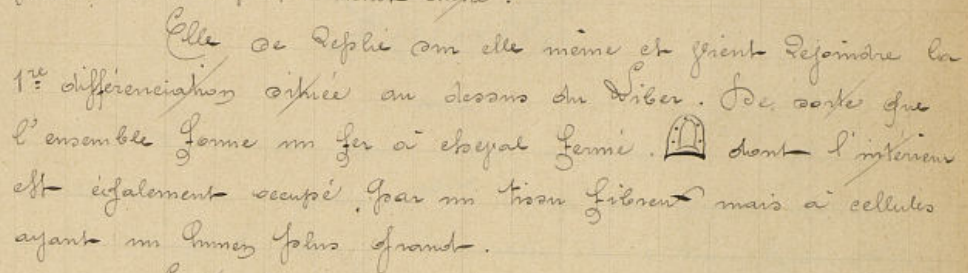 Elle se Replie sur elle même et vient Rejoindre la
1re différenciation située au dessus du Liber. De sorte que
l'ensemble forme un fer à cheval fermé. dont l'intérieur
est également occupé par un tissu fibreux mais à cellules
ayant un lumen plus grand.